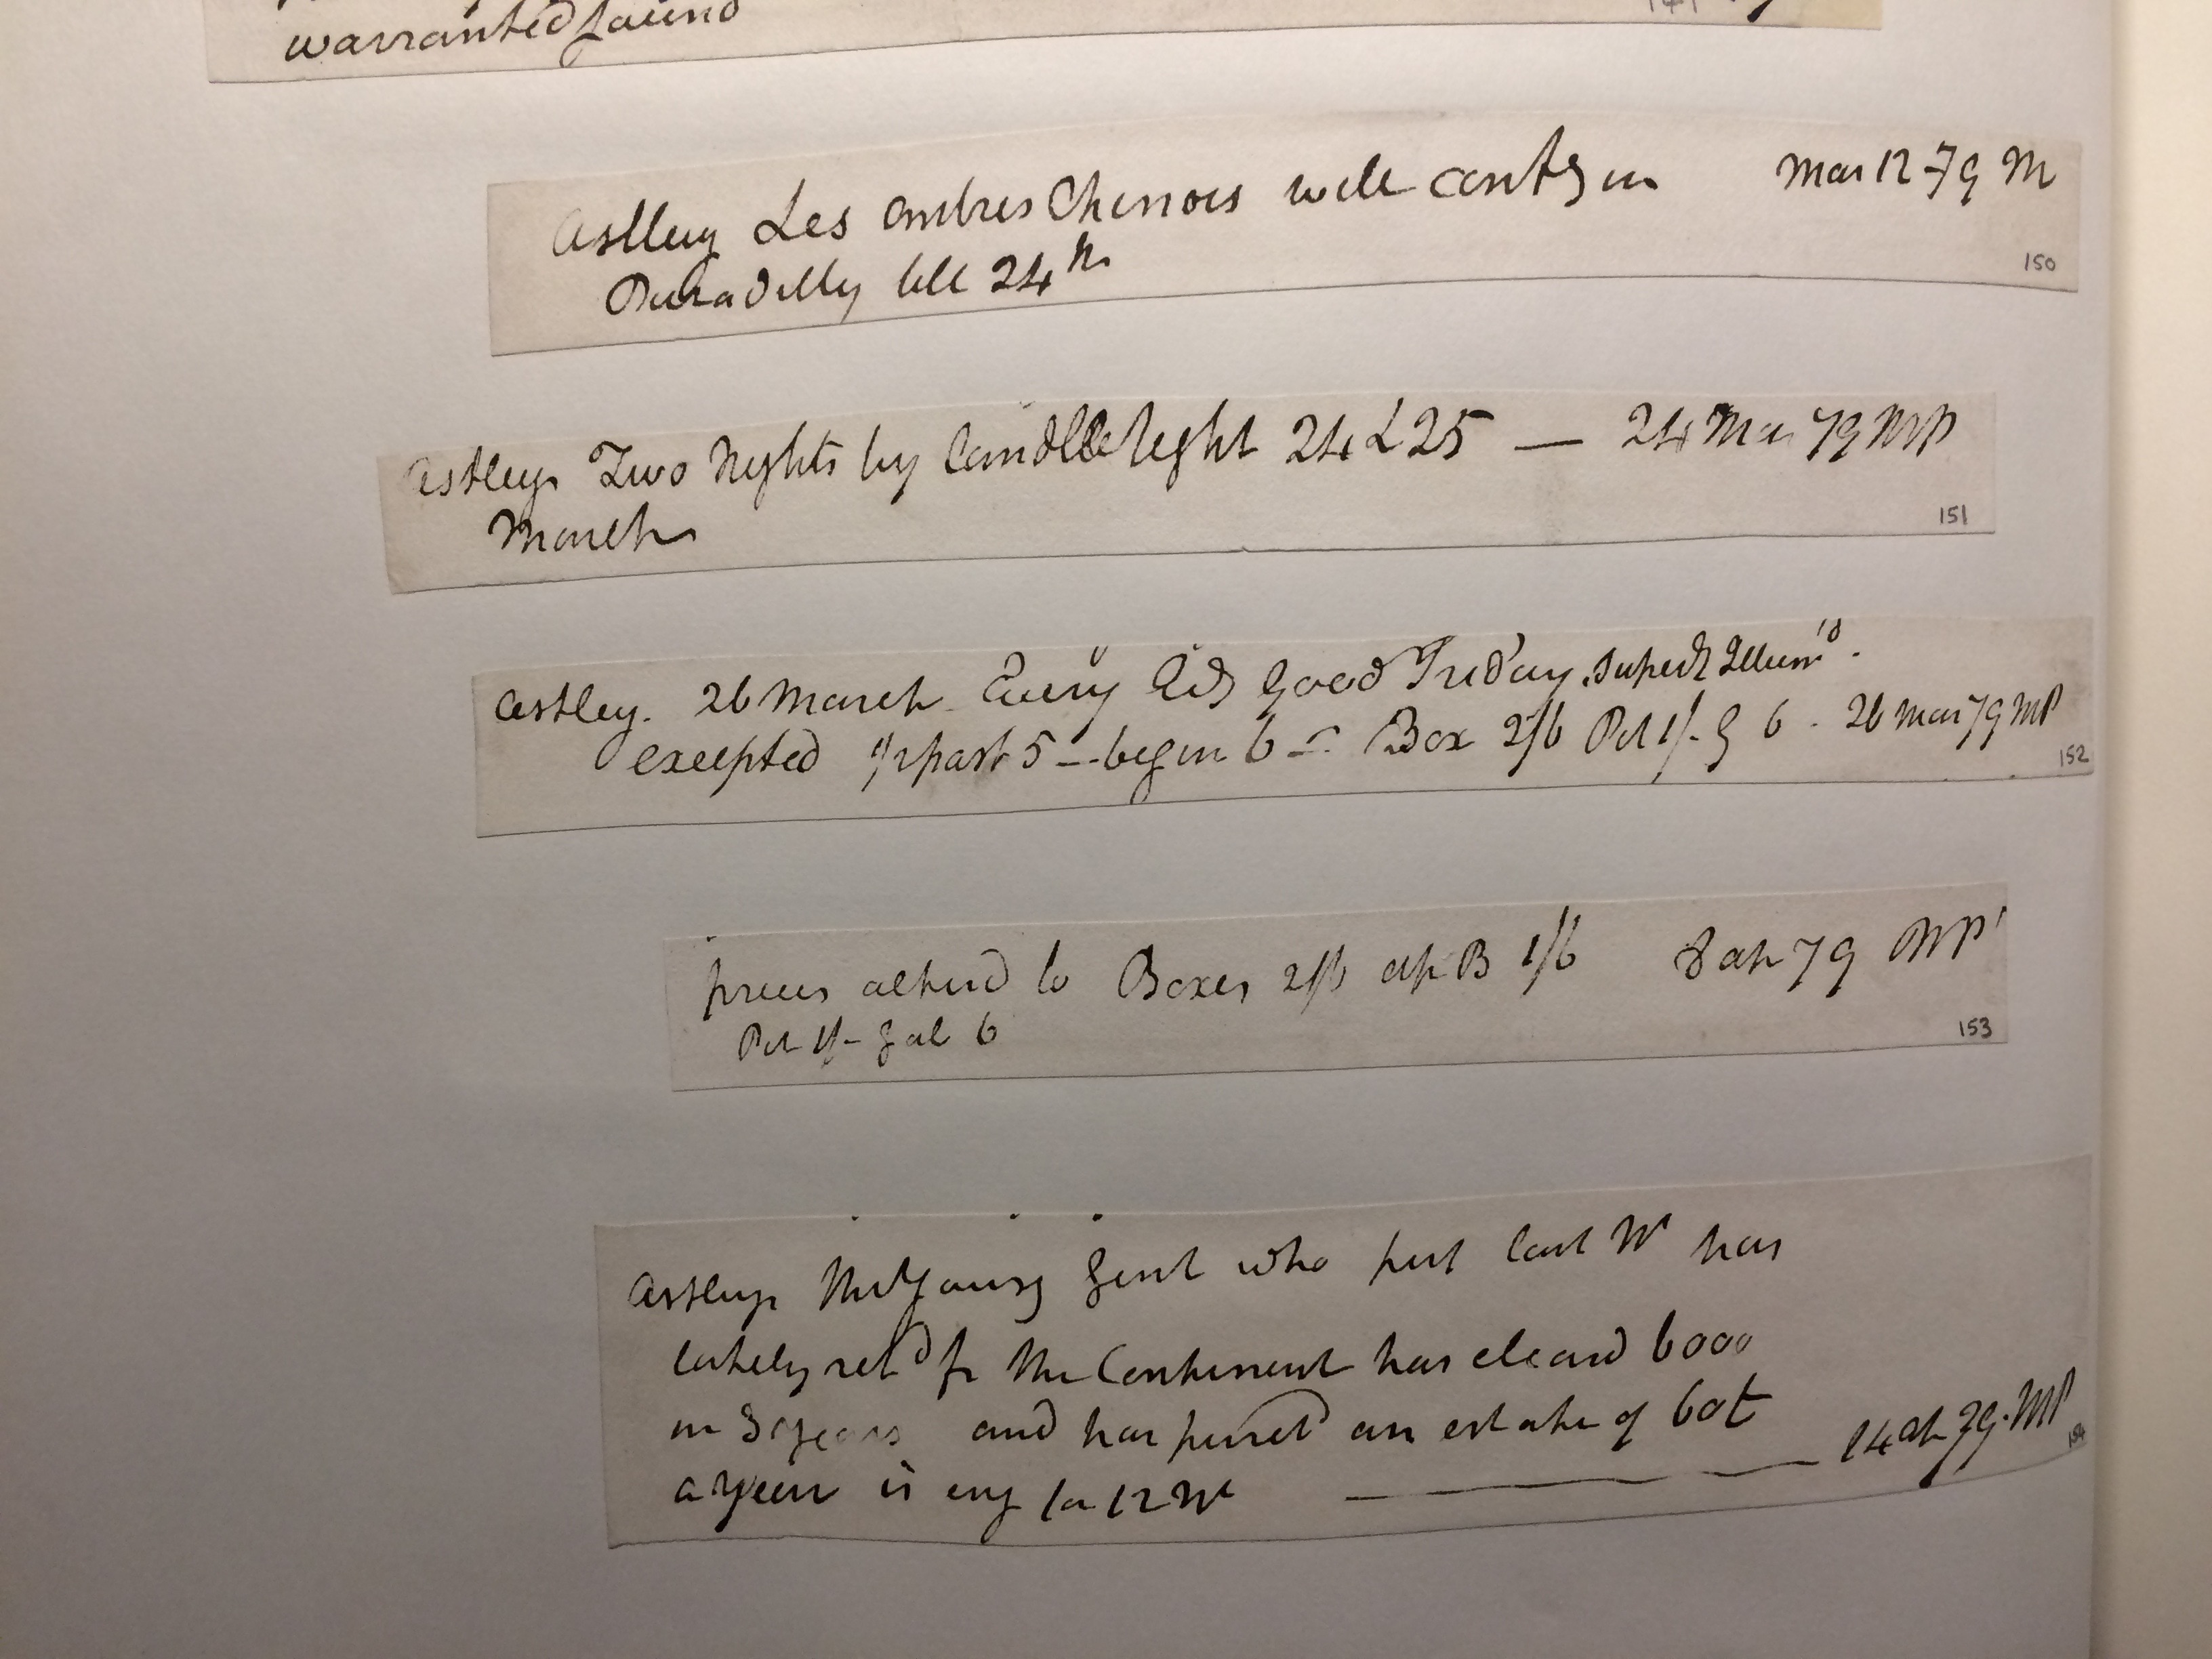 warranted sound
Astley Les ombres Chinois will conty in Mar 12 79 M
Piccadilly till 24th
150
Astleys Two Nights by Candle light 24 & 25 — 24 Mar 79 MP
March
151
Astley. 26 March Every Good Friday. superb Illumd.
excepted 1/2 past 5 — begin 6 — Box 2/6 Pit 1/- G 6. 26 Mar 79 MP
152
prices alterd to Boxes 2/6 up B 1/6 8 ap 79 MP
Pit 1/- Gal 6
153
Astleys The Young Gent who perf last Wk has
lately retd fr the Continent has cleard 6000
in 3 years and has purcd an estate of 60£
a year is eng for 12 Nt — 14 ap 79. MP
154